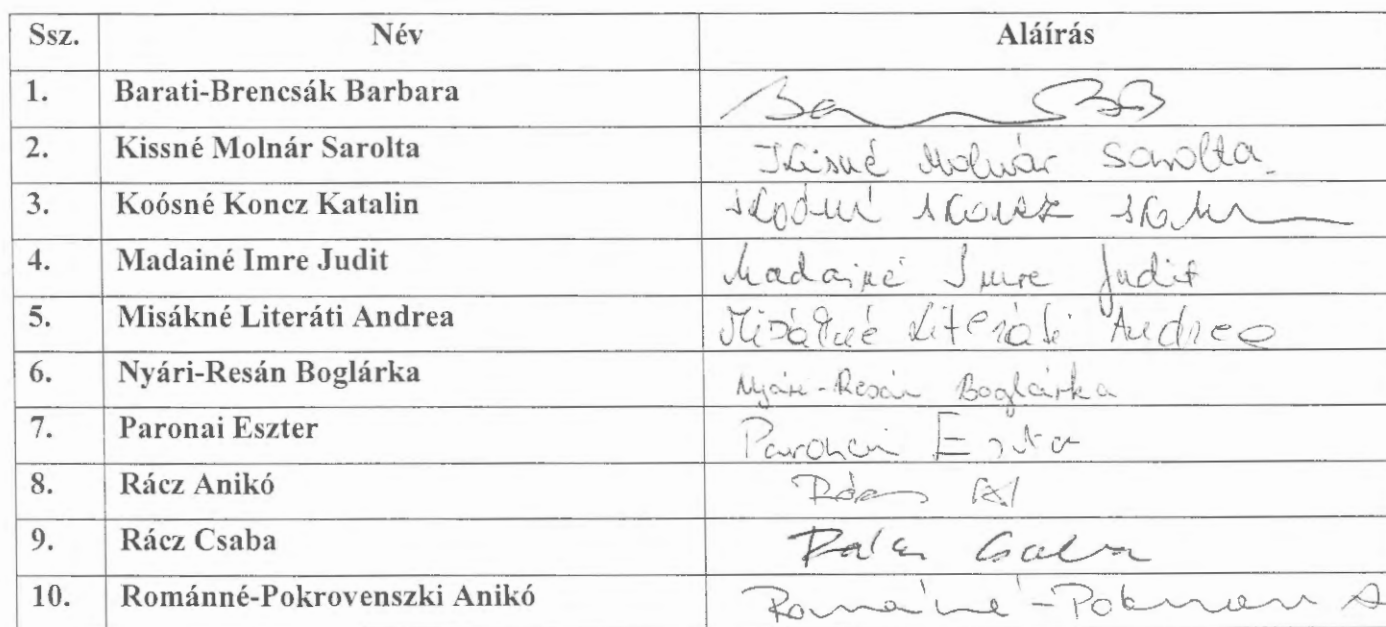 Ssz. Név Aláírás
1. Barati-Brencsák Barbara
2. Kissné Molnár Sarolta Kissné Molnár Sarolta
3. Koósné Koncz Katalin Koósné Koncz
4. Madainé Imre Judit Madainé Imre Judit
5. Misákné Literáti Andrea Misákné Literáti Andrea
6. Nyári-Resán Boglárka Nyári-Resán Boglárka
7. Paronai Eszter Paronai Eszter
8. Rácz Anikó Rácz A
9. Rácz Csaba Rácz Csaba
10. Románné-Pokrovenszki Anikó Románné-